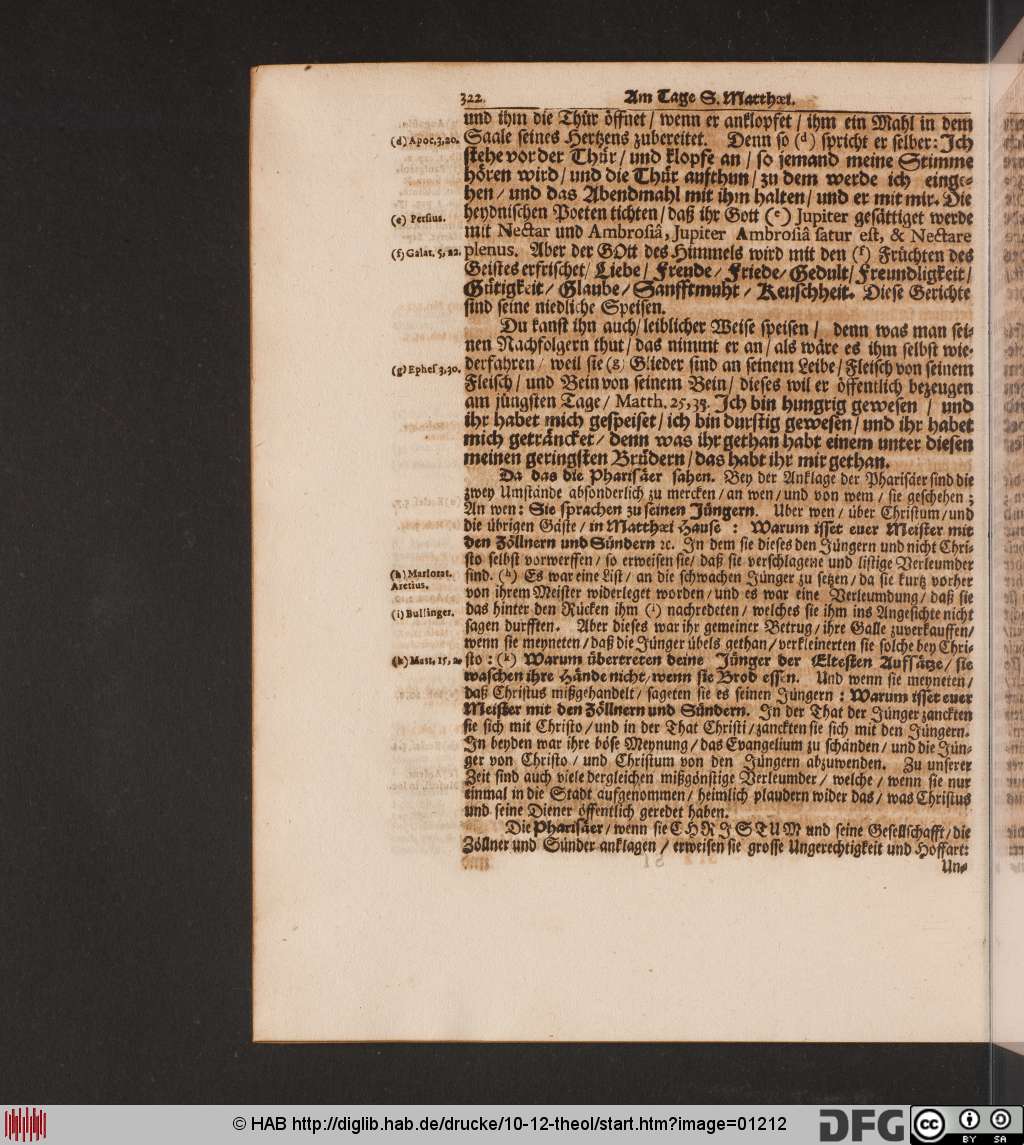 322. Am Tage S. Matthæi.
und ihm die Thür öffnet / wenn er anklopfet / ihm ein Mahl in dem
(d) Apoc. 3, 20. Saale seines Hertzens zubereitet. Denn so (d) spricht er selber: Ich
stehe vor der Thür / und klopfe an / so jemand meine Stimme
hören wird / und die Thür aufthun / zu dem werde ich einge-
hen / und das Abendmahl mit ihm halten / und er mit mir. Die
(e) Persius. heydnischen Poeten tichten / daß ihr Gott (e) Jupiter gesättiget werde
mit Nectar und Ambrosiâ, Jupiter Ambrosiâ satur est, & Nectare
(f) Galat. 5, 22. plenus. Aber der GOtt des Himmels wird mit den (f) Früchten des
Geistes erfrischet / Liebe / Freude / Friede / Gedult / Freundligkeit /
Gütigkeit / Glaube / Sanfftmuht / Keuschheit. Diese Gerichte
sind seine niedliche Speisen.
Du kanst ihn auch / leiblicher Weise speisen / denn was man sei-
nen Nachfolgern thut / das nimmt er an / als wäre es ihm selbst wie-
(g) Ephes. 3, 30. derfahren / weil sie (g) Glieder sind an seinem Leibe / Fleisch von seinem
Fleisch / und Bein von seinem Bein / dieses wil er öffentlich bezeugen
am jüngsten Tage / Matth. 25, 39. Ich bin hungrig gewesen / und
ihr habet mich gespeiset / ich bin durstig gewesen / und ihr habet
mich geträncket / denn was ihr gethan habt einem unter diesen
meinen geringsten Brüdern / das habt ihr mir gethan.
Da das die Pharisäer sahen. Bey der Anklage der Pharisäer sind die
zwey Umstände absonderlich zu mercken / an wen / und von wem / sie geschehen;
An wen: Sie sprachen zu seinen Jüngern. Uber wen / über Christum / und
die übrigen Gäste / in Matthæi Hause : Warum isset euer Meister mit
den Zöllnern und Sündern ꝛc. In dem sie dieses den Jüngern und nicht Chri-
sto selbst vorwerffen / so erweisen sie / daß sie verschlagene und listige Verleumder
(h) Marlorat. Aretius. sind. (h) Es war eine List / an die schwachen Jünger zu setzen / da sie kurtz vorher
von ihrem Meister widerleget worden / und es war eine Verleumdung / daß sie
(i) Bullinger. das hinter den Rücken ihm (i) nachredeten / welches sie ihm ins Angesichte nicht
sagen durfften. Aber dieses war ihr gemeiner Betrug / ihre Galle zuverkauffen /
wenn sie meyneten / daß die Jünger übels gethan / verkleinerten sie solche bey Chri-
(k) Matt. 15, 2. sto : (k) Warum übertreten deine Jünger der Eltesten Aufsätze / sie
waschen ihre Hände nicht / wenn sie Brod essen. Und wenn sie meyneten /
daß Christus mißgehandelt / sageten sie es seinen Jüngern : Warum isset euer
Meister mit den Zöllnern und Sündern. In der That der Jünger zanckten
sie sich mit Christo / und in der That Christi / zanckten sie sich mit den Jüngern.
In beyden war ihre böse Meynung / das Evangelium zu schänden / und die Jün-
ger von Christo / und Christum von den Jüngern abzuwenden. Zu unserer
Zeit sind auch viele dergleichen mißgönstige Verleumder / welche / wenn sie nur
einmal in die Stadt aufgenommen / heimlich plaudern wider das / was Christus
und seine Diener öffentlich geredet haben.
Die Pharisäer / wenn sie CHRISTUM und seine Gesellschafft / die
Zöllner und Sünder anklagen / erweisen sie grosse Ungerechtigkeit und Hoffart:
Un-
© HAB http://diglib.hab.de/drucke/10-12-theol/start.htm?image=01212 DFG CC BY SA